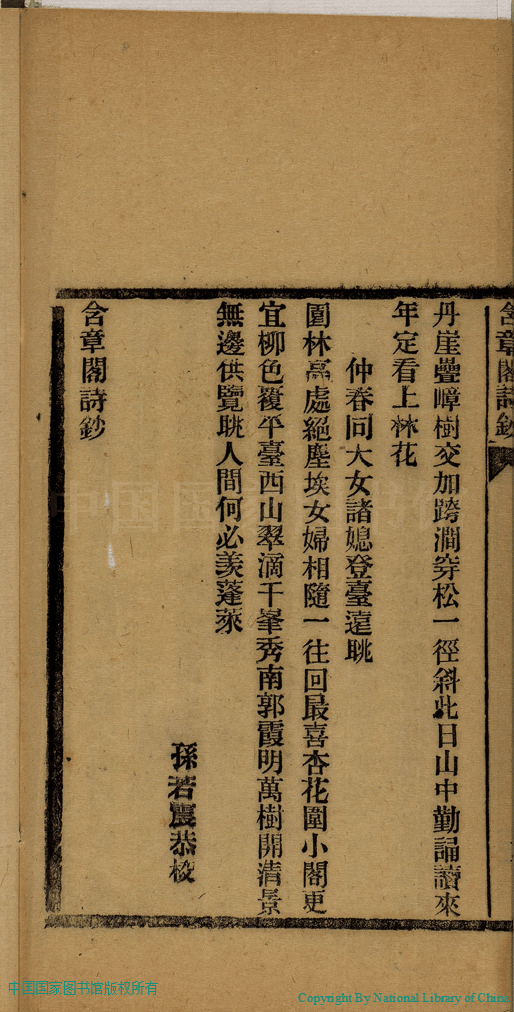 含章閣詩鈔
丹崖疊嶂樹交加跨澗穿松一徑斜此日山中勤誦讀來
年定看上林花
仲春同大女諸媳登臺遠眺
園林高處絕塵埃女婦相隨一往回最喜杏花圍小閣更
宜柳色覆平臺西山翠滴千峯秀南郭霞明萬樹開清景
無邊供覽眺人間何必羨蓬萊
孫若震恭校
含章閣詩鈔
中国国家图书馆版权所有
Copyright By National Library of China